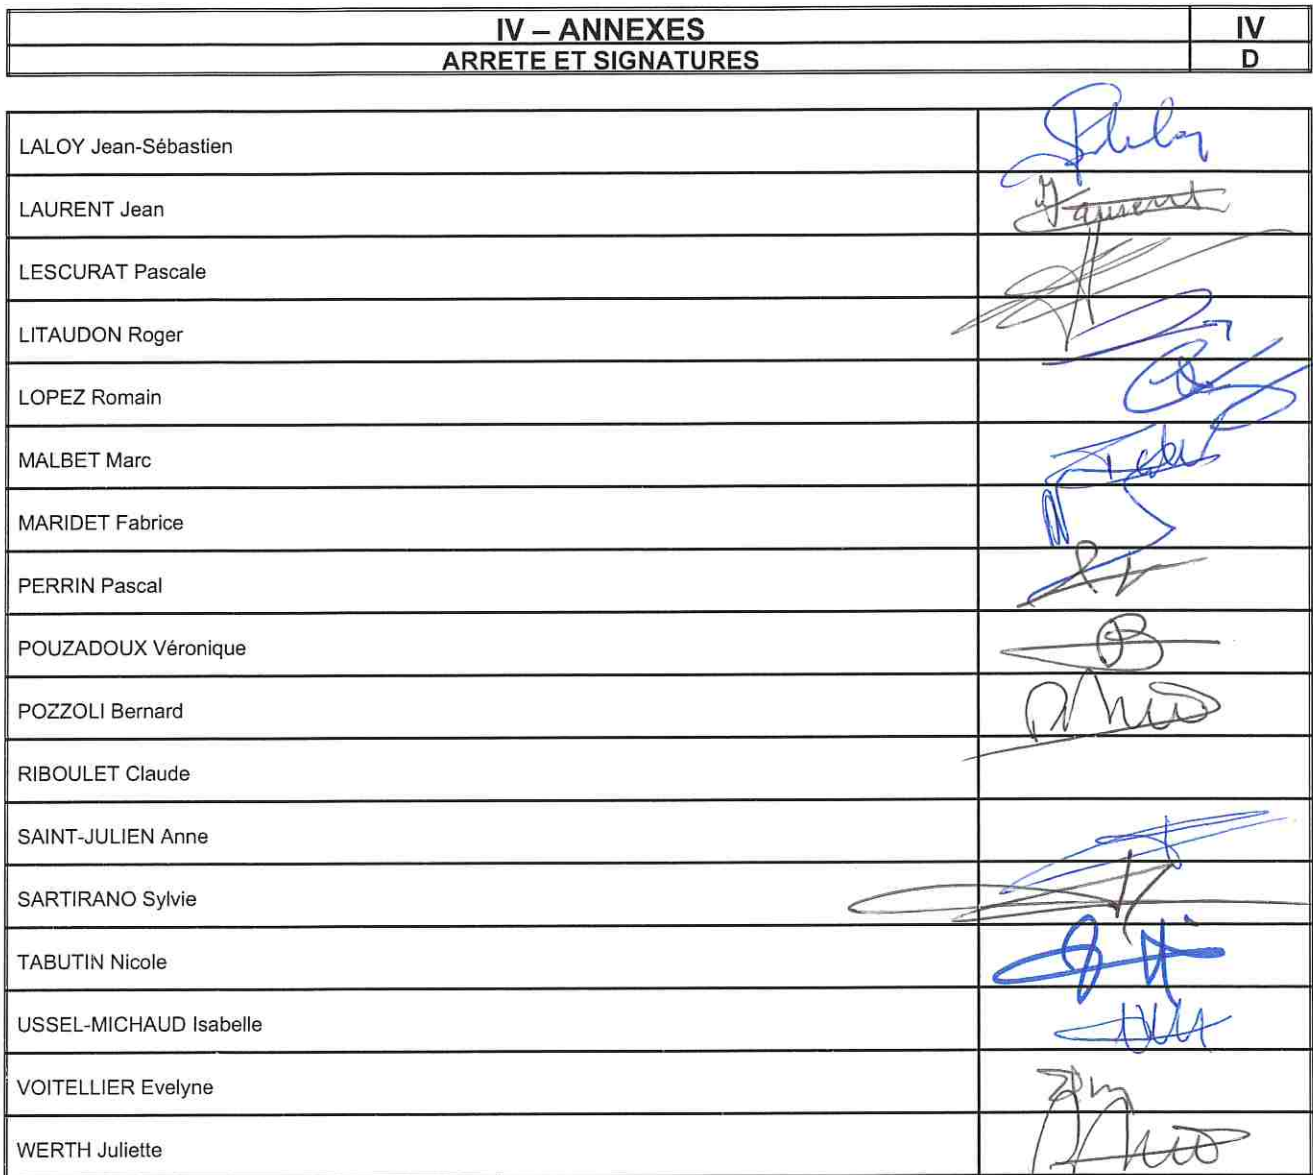 IV – ANNEXES IV
ARRETE ET SIGNATURES D
LALOY Jean-Sébastien
LAURENT Jean Laurent
LESCURAT Pascale
LITAUDON Roger
LOPEZ Romain
MALBET Marc
MARIDET Fabrice
PERRIN Pascal
POUZADOUX Véronique
POZZOLI Bernard
RIBOULET Claude
SAINT-JULIEN Anne
SARTIRANO Sylvie
TABUTIN Nicole
USSEL-MICHAUD Isabelle
VOITELLIER Evelyne
WERTH Juliette